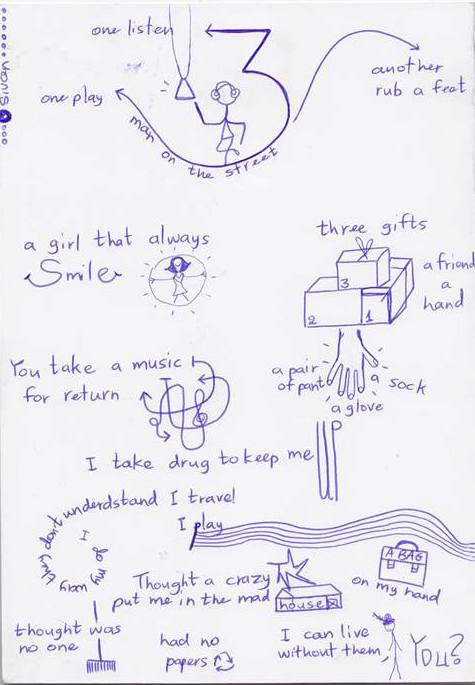 one listen
3
another
rub a feet
one play
man on the street
a girl that always
Smile
three gifts
3
2
1
a friend
a
hand
a pair
of pant
a sock
a glove
You take a music
for return
I take drug to keep me
up
they don't understand I travel
I go my way
I play
Thought a crazy
put me in the mad
house
A BAG
on my hand
thought was
no one
had no
papers
I can live
without them,
You?